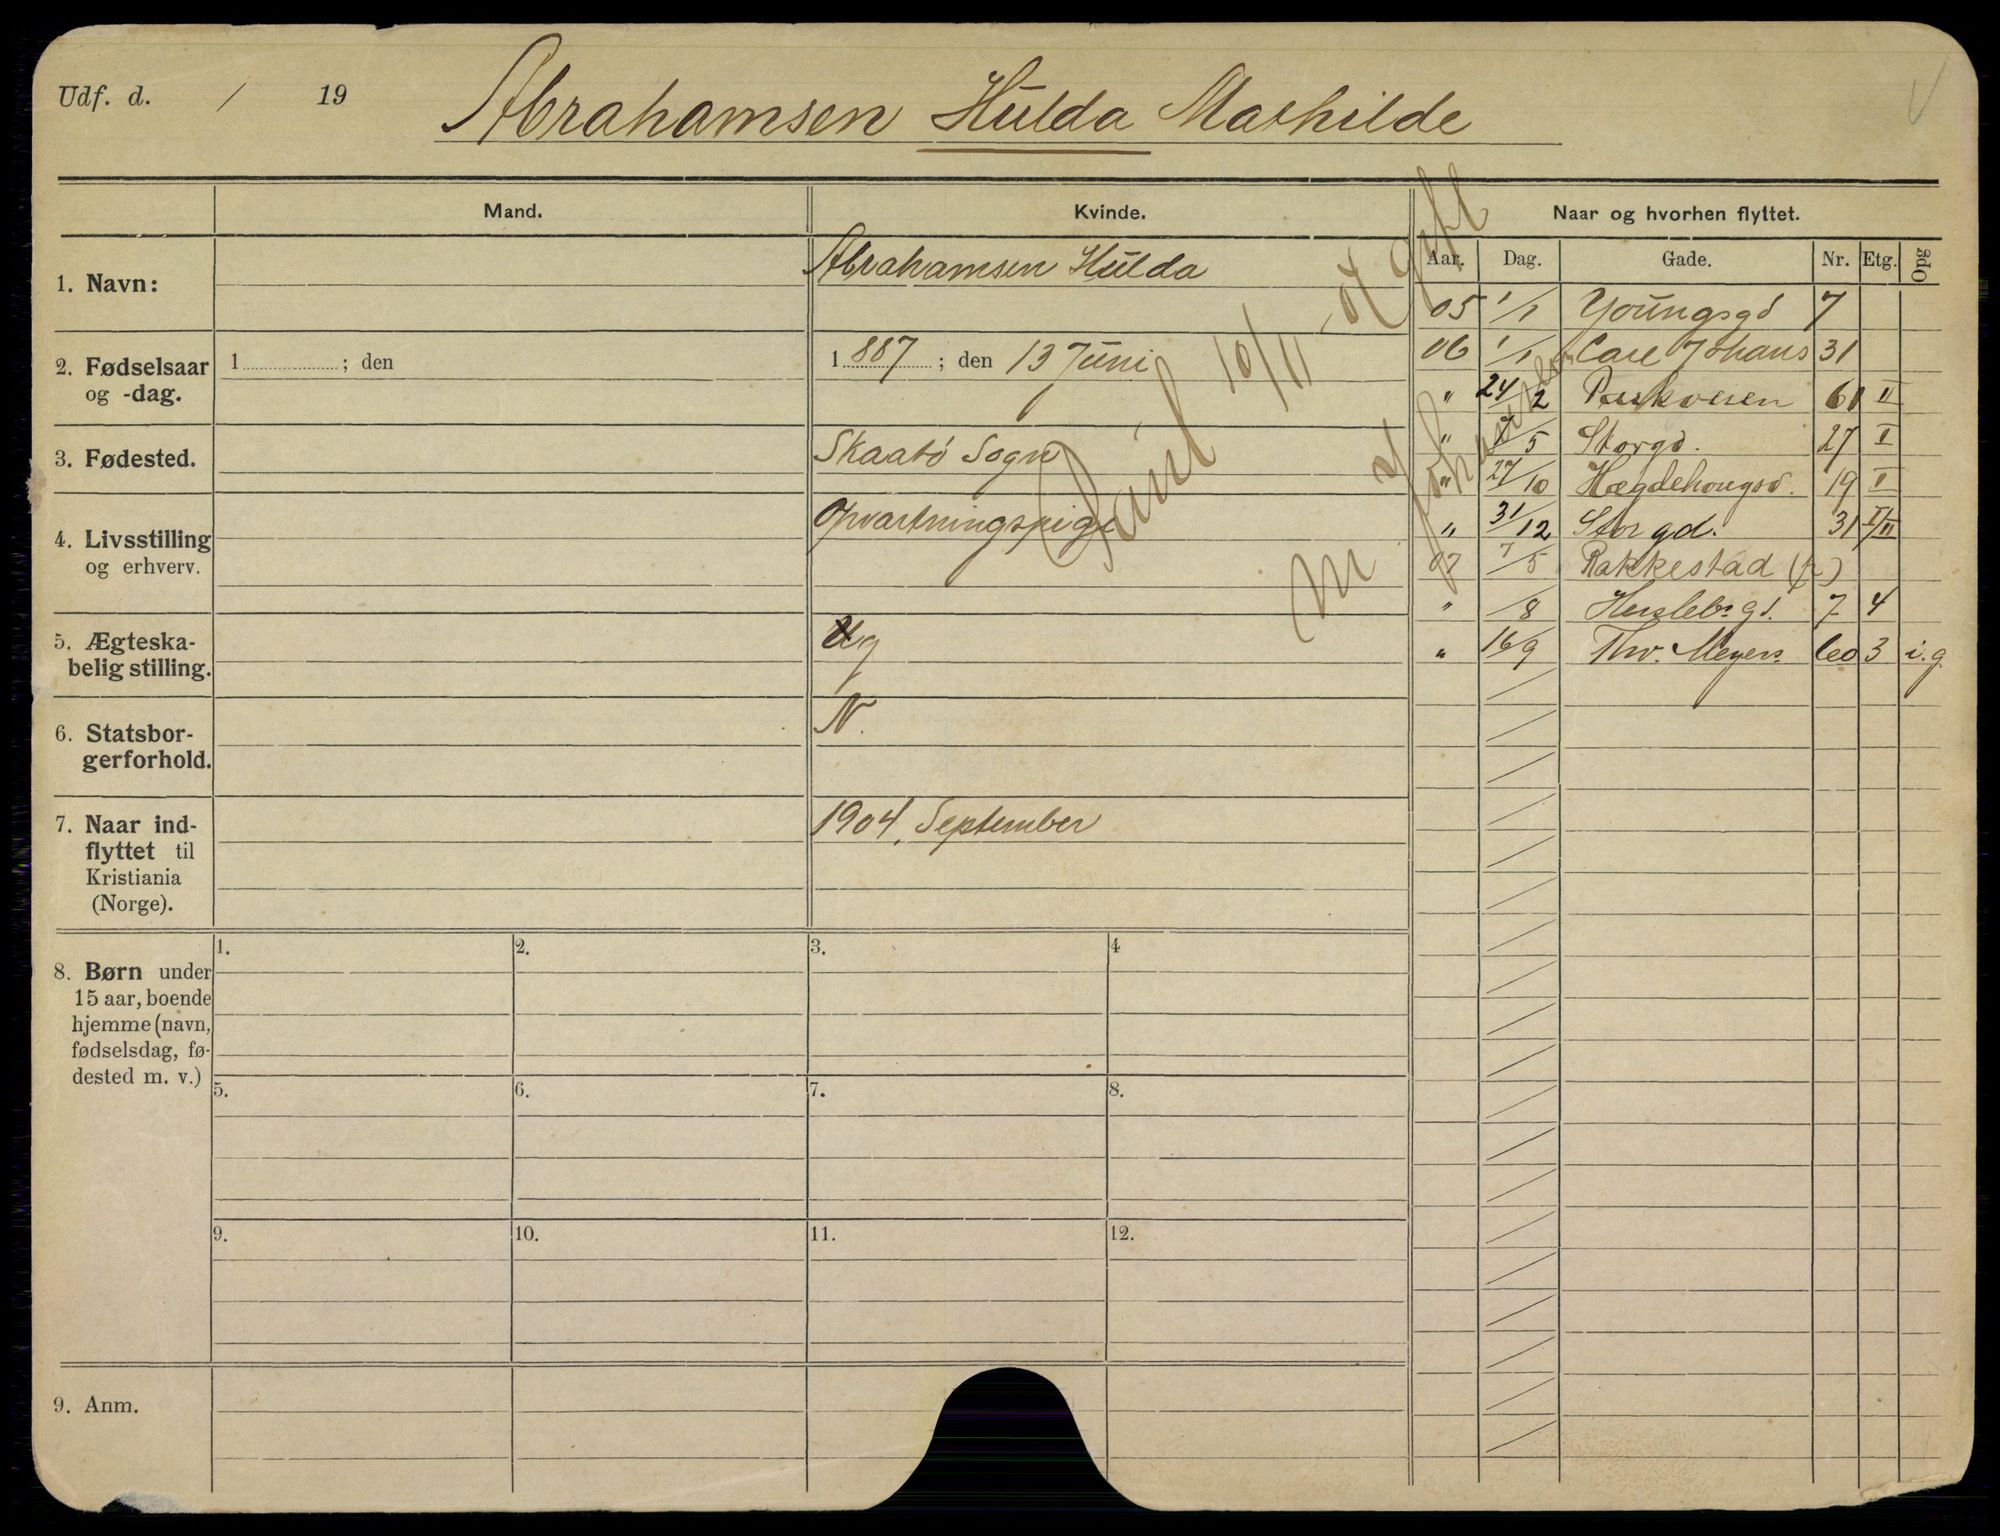 Udf. d. / 19
Abrahamsen Hulda Mathilde
Mand.
Kvinde.
Naar og hvorhen flyttet.
Aar. Dag. Gade. Nr. Etg. Opg
1. Navn:
Abrahamsen Hulda
2. Fødselsaar
og -dag.
1 ; den
1887 ; den 13 Juni
3. Fødested.
Skaatö Sogn
4. Livsstilling
og erhverv.
Opvartningspige
5. Ægteska-
belig stilling.
Ug
6. Statsbor-
gerforhold.
N.
7. Naar ind-
flyttet til
Kristiania
(Norge).
1904, September
8. Børn under
15 aar, boende
hjemme (navn,
fødselsdag, fø-
dested m. v.)
1. 2. 3. 4
5. 6. 7. 8.
9. 10. 11. 12.
9. Anm.
05 1/1 Youngsgd 7
06 1/1 Carl Johans 31
" 24/2 Parkveien 61 II
" /5 Storgd. 27 I
" 27/10 Hægdehougsv. 19 I
" 31/12 Storgd. 31 I/II
07 7/5 Rakkestad
" /8 Herslebs gd. 7 4
" 16/9 Thv. Meyers 60 3 i.g.
10/11 - 07 gift
m